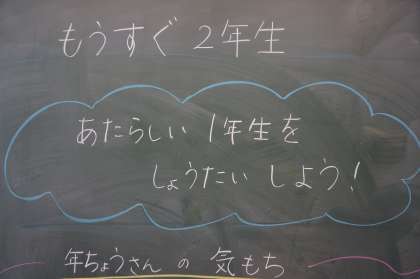 もうすぐ 2年生
あたらしい 1年生を
しょうたい しよう!
年ちょうさん の 気もち